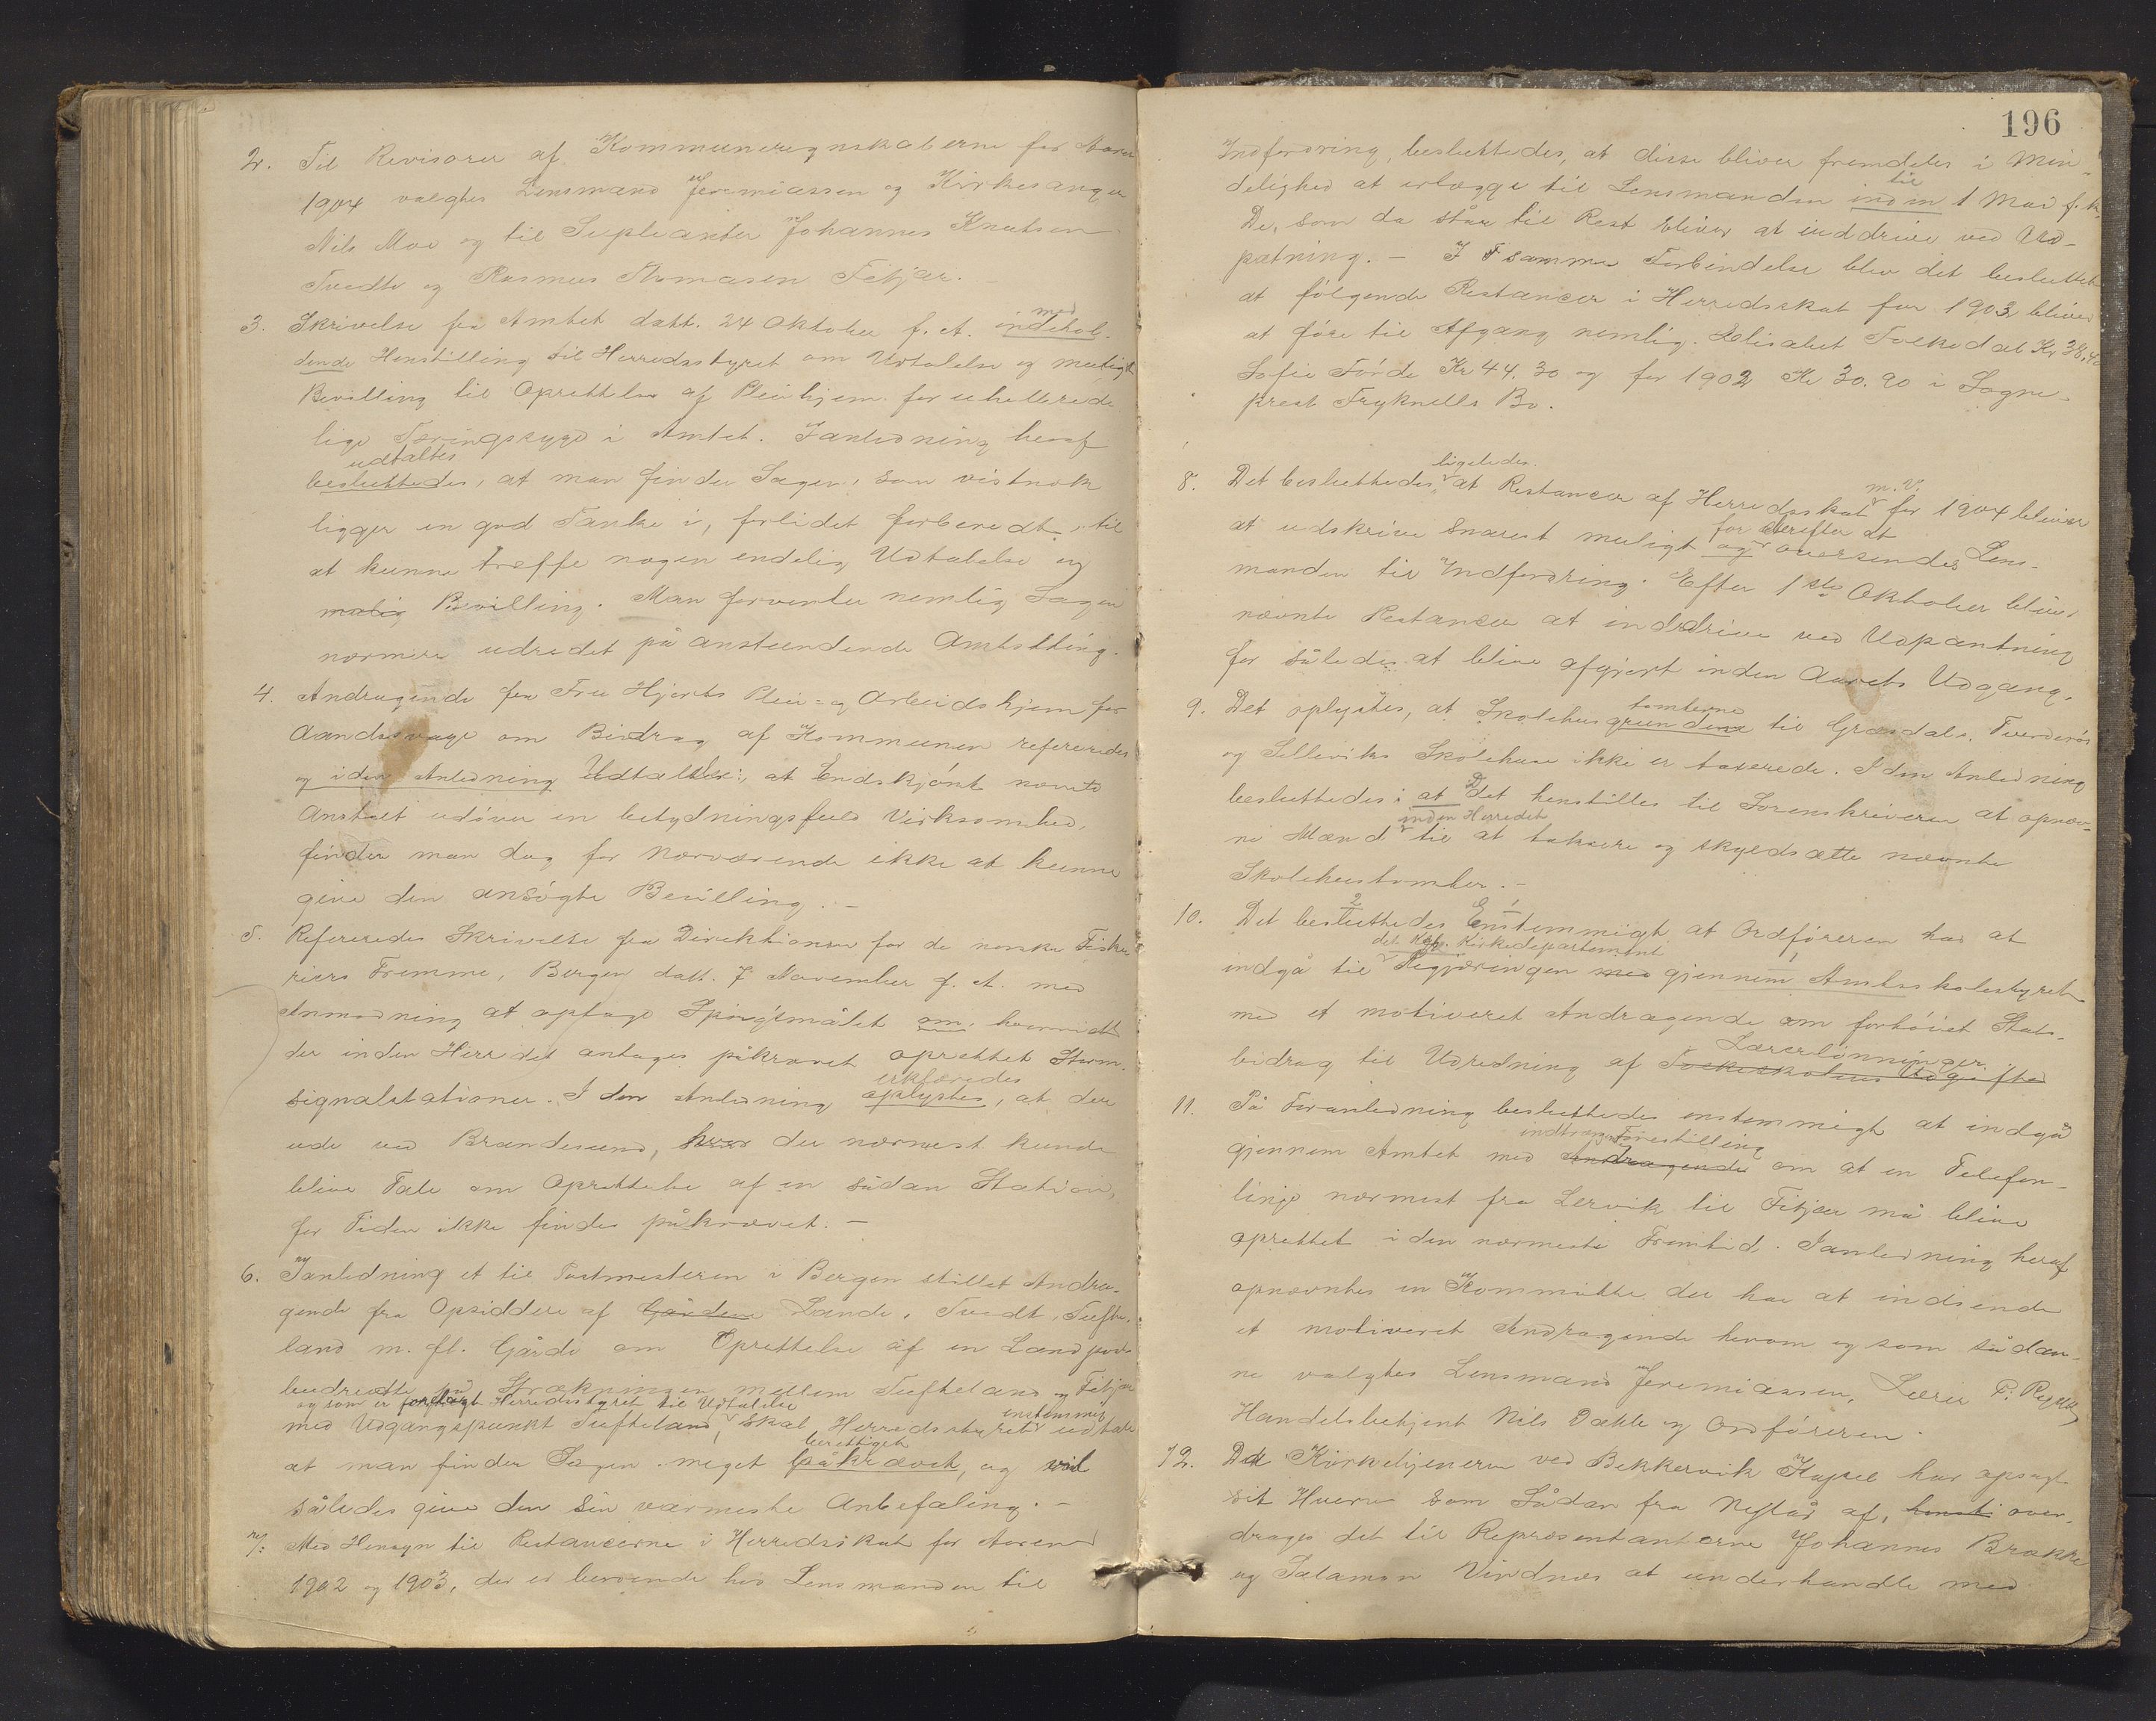 2. Til Revisorer af Kommuneregnskaberne for Aaret
1904 valgtes Lensmand Jeremiassen og Kirkesanger
Nils Moe og til Supleanter Johannes Knutsen
Tvedte og Rasmus Thomasen Fitjar. –
3. Skrivelse fra Amtet datt. 24 Oktober f. A. indehol-
med
dende Henstilling til Herredsstyret om Udtalelse og muligt
Bevilling til Oprettelse af Pleiehjem for uhelbrede-
lige Tæringssyge i Amtet. I anledning heraf
udtaltes
besluttedes, at man finder Sagen, som vistnok
ligger en god Tanke i, forlidet forberedt, til
at kunne træffe nogen endelig Udtalelse og
mulig Bevilling. Man forventer nemlig Sagen
nærmere udredet på anstundende Amtsting.
4. Andragende fra Fru Hjorts Pleie- og Arbeidshjem for
Aandssvage om Bidrag af Kommunen refereredes
og i den Anledning Udtaltes:, at Endskjønt nævnte
Anstalt udøver en betydningsfuld Virksomhed,
finder man dog for Nærværende ikke at kunne
give den ansøgte Bevilling. –
5. Refereredes Skrivelse fra Direktionen for de norske Fiske-
riers Fremme, Bergen datt. 7 November f. A. med
Anmodning at optage Spørgsmålet om, hvorvidt
der inden Herredet antages påkrævet oprettet Storm-
signalstationer. I den Anledning oplystes, at der
erklæredes
ude ved Brandesund, hvor der nærmest kunde
blive Tale om Oprettelse af en sådan Station,
for Tiden ikke findes påkrævet. –
6. I anledning et til Postmesteren i Bergen stillet Andra-
gende fra Opsiddere af Gårdene Lande, Tvedt, Tufte-
land m. fl. Gårde om Oprettelse af en Landpost-
budrute på Strækningen mellem Tufteland og Fitjar
og som er forelagt Herredsstyret til Udtalelse
med Udgangspunkt Tufteland, skal Herredsstyret udtale
enstemmig
at man finder Sagen meget påkrævet, og vil
berettiget
således give den sin varmeste Anbefaling. –
7. Med Hensyn til Restancerne i Herredsskat for Aarene
1902 og 1903, der er beroende hos Lensmanden til
196
Indfordring, besluttedes, at disse bliver fremdeles i Min-
delighed at erlægge til Lensmanden inden 1 Mai f. k.
til
De, som da står til Rest bliver at inddrive ved Ud-
pætning. – I samme Forbindelse blev det besluttet
at følgende Restancer i Herredsskat for 1903 bliver
at føre til Afgang nemlig. Elisabet Folkedal Kr 38,40
Sofie Førde Kr 44.30 og for 1902 Kr 30.90 i Sogne-
prest Fryknells Bo.
8. Det besluttedes, at Restancer af Herredsskat for 1904 bliver
ligeledes
m. v.
at udskrive snarest muligt og oversendes Lens-
for derefter at
manden til Indfordring. Efter 1ste Oktober bliver
nævnte Restancer at inddrive ved Udpantning
for således at blive afgjort inden Aarets Udgang.
9. Det oplystes, at Skolehusgrundene til Græsdals, Tverderøs
tomterne
og Selleviks Skolehuse ikke er taxerede. I den Anledning
besluttedes: at Det henstilles til Sorenskriveren at opnæv-
inden Herredet
ne Mænd til at taksere og skyldsætte nævnte
Skolehustomter. –
10. Det besluttedes Enstemmigt at Ordføreren har at
det Kgl. Kirkedepartement
indgå til Regjæringen med gjennem Amtsskolestyret
med et motiveret Andragende om forhøiet Stats-
bidrag til Udredning af Folkeskolens Udgifter
Lærerlønninger.
11. På Foranledning besluttedes enstemmigt at indgå
indtrængende Forestilling
gjennem Amtet med Andragende om at en Telefon-
linje nærmest fra Lervik til Fitjar må blive
oprettet i den nærmeste Fremtid. I anledning heraf
opnævntes en Kommitte der har at indsende
et motiveret Andragende herom og som sådan-
ne valgtes Lensmand Jeremiassen, Lærer P. Rykke
Handelsbetjent Nils Dahle og Ordføreren.
12. Da Kirketjeneren ved Bekkervik Kapel har opsagt
sit Hverv som Sådan fra Nyttår af, over-
drages det til Repræsentanterne Johannes Brakke
og Salamon Vindnæs at underhandle med